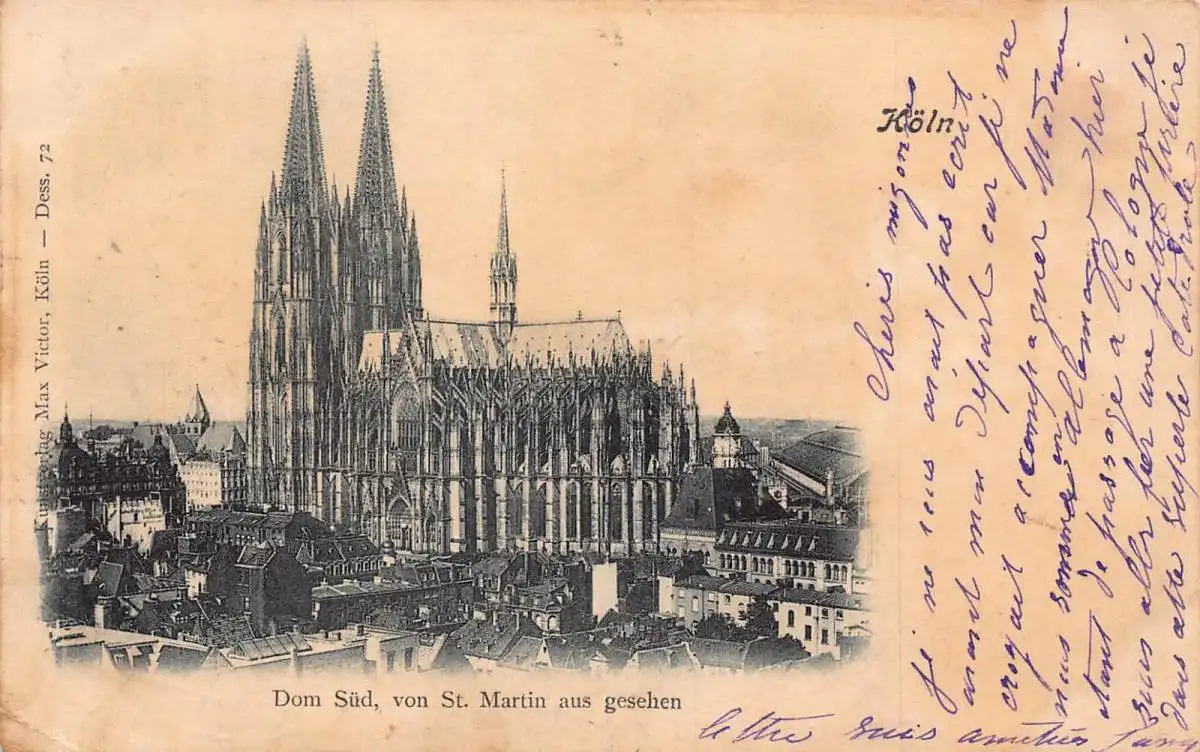 Köln
Verlag Max Victor, Köln — Dess. 72
Dom Süd, von St. Martin aus gesehen
cheris mignons
je ne vous aiant pas ecrit
avant mon départ car je ne
croyait accompagner Madame
nous somme en allemagne hier
etant de passage a Cologne je
suis alle fair une petite prière
dans cate superbe Catédrole
lettre suis amitiés